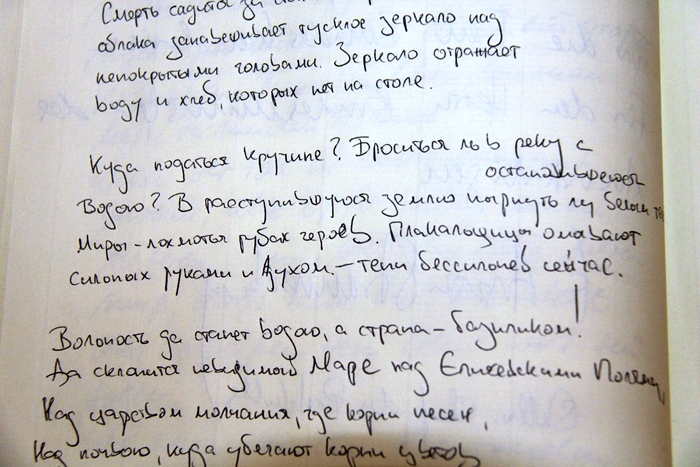 Смерть садится за
облака занавешивает тусклое зеркало над
непокрытыми головами. Зеркало отражает
воду и хлеб, которых нет на столе.
Куда податься кручине? Броситься ль в реку с
остановившейся
Водою? В расступившуюся землю нырнуть ли
Миры - лохмотья рубах героев. Плакальщицы омывают
сильных руками и духом. - тени бессильнев сейчас.
Вольность да станет водою, а страна - базиликом!
Да склонится невидимой Маре над Елисейскими Полями,
Над царством молчания, где корни песен,
Над почвою, куда убегают корни цветов